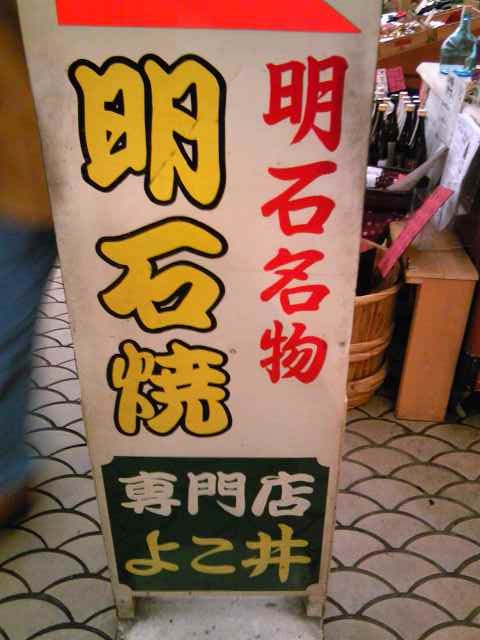 明石名物
明石焼
専門店
よこ井